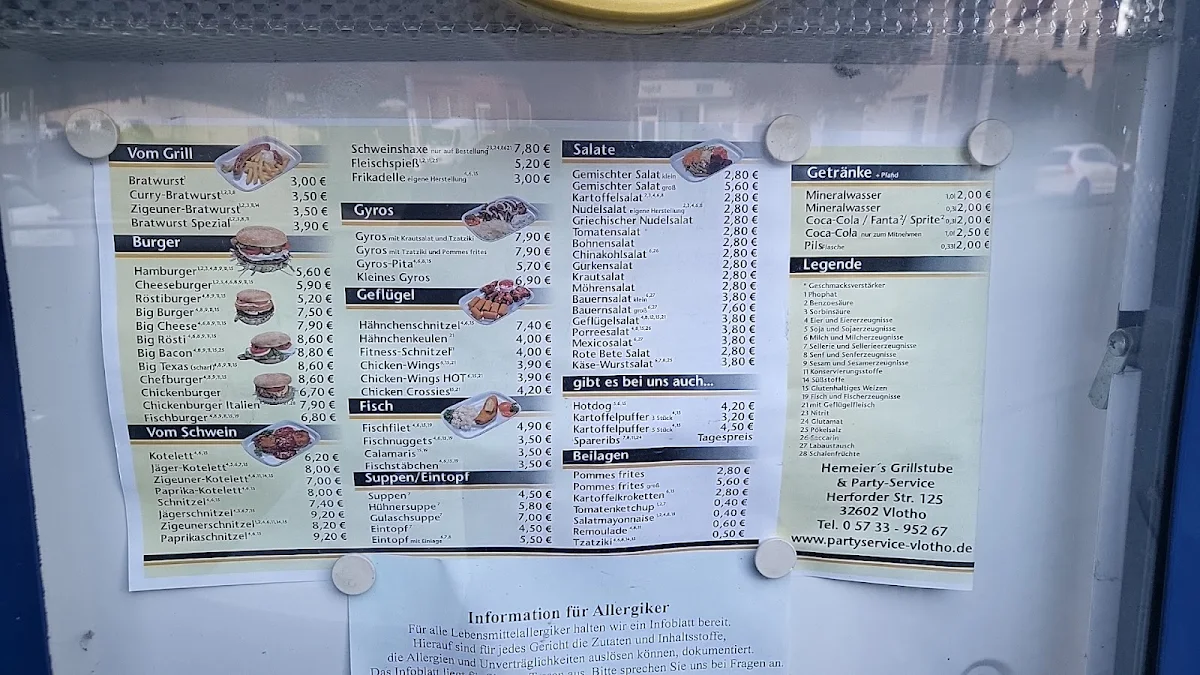 Vom Grill
Bratwurst 3,00 €
Curry-Bratwurst 3,50 €
Zigeuner-Bratwurst 3,50 €
Bratwurst Spezial 3,90 €
Burger
Hamburger 5,60 €
Cheeseburger 5,90 €
Röstiburger 5,20 €
Big Burger 7,50 €
Big Cheese 7,90 €
Big Rösti 8,60 €
Big Bacon 8,80 €
Big Texas (scharf) 8,60 €
Chefburger 8,60 €
Chickenburger 6,70 €
Chickenburger Italien 7,90 €
Fischburger 6,80 €
Vom Schwein
Kotelett 6,20 €
Jäger-Kotelett 8,00 €
Zigeuner-Kotelett 7,00 €
Paprika-Kotelett 8,00 €
Schnitzel 7,40 €
Jägerschnitzel 9,20 €
Zigeunerschnitzel 8,20 €
Paprikaschnitzel 9,20 €
Schweinshaxe nur auf Bestellung 7,80 €
Fleischspieß 5,20 €
Frikadelle eigene Herstellung 3,00 €
Gyros
Gyros mit Krautsalat und Tzatziki 7,90 €
Gyros mit Tzatziki und Pommes frites 7,90 €
Gyros-Pita 5,70 €
Kleines Gyros 6,90 €
Geflügel
Hähnchenschnitzel 7,40 €
Hähnchenkeulen 4,00 €
Fitness-Schnitzel 4,00 €
Chicken-Wings 3,90 €
Chicken-Wings HOT 3,90 €
Chicken Crossies 4,20 €
Fisch
Fischfilet 4,90 €
Fischnuggets 3,50 €
Calamaris 3,50 €
Fischstäbchen 3,50 €
Suppen/Eintopf
Suppen 4,50 €
Hühnersuppe 5,80 €
Gulaschsuppe 7,00 €
Eintopf 4,50 €
Eintopf mit Einlage 5,50 €
Salate
Gemischter Salat klein 2,80 €
Gemischter Salat groß 5,60 €
Kartoffelsalat 2,80 €
Nudelsalat eigene Herstellung 2,80 €
Griechischer Nudelsalat 2,80 €
Tomatensalat 2,80 €
Bohnensalat 2,80 €
Chinakohlsalat 2,80 €
Gurkensalat 2,80 €
Krautsalat 2,80 €
Möhrensalat 2,80 €
Bauernsalat klein 3,80 €
Bauernsalat groß 7,60 €
Geflügelsalat 3,80 €
Porreesalat 3,80 €
Mexicosalat 3,80 €
Rote Bete Salat 2,80 €
Käse-Wurstsalat 3,80 €
gibt es bei uns auch...
Hotdog 4,20 €
Kartoffelpuffer 3 Stück 3,20 €
Kartoffelpuffer 5 Stück 4,50 €
Spareribs Tagespreis
Beilagen
Pommes frites 2,80 €
Pommes frites groß 5,60 €
Kartoffelkroketten 2,80 €
Tomatenketchup 0,40 €
Salatmayonnaise 0,40 €
Remoulade 0,60 €
Tzatziki 0,50 €
Getränke + Pfand
Mineralwasser 1,0l 2,00 €
Mineralwasser 0,3l 2,00 €
Coca-Cola / Fanta²/ Sprite² 0,3l 2,00 €
Coca-Cola nur zum Mitnehmen 1,0l 2,50 €
Pils Flasche 0,33l 2,00 €
Legende
* Geschmacksverstärker
1 Phophat
2 Benzoesäure
3 Sorbinsäure
4 Eier und Eiererzeugnisse
5 Soja und Sojaerzeugnisse
6 Milch und Milcherzeugnisse
7 Sellerie und Sellerieerzeugnisse
8 Senf und Senferzeugnisse
9 Sesam und Sesamerzeugnisse
11 Konservierungsstoffe
14 Süßstoffe
15 Glutenhaltiges Weizen
19 Fisch und Fischerzeugnisse
21 mit Geflügelfleisch
23 Nitrit
24 Glutamat
25 Pökelsalz
26 Saccarin
27 Labaustausch
28 Schalenfrüchte
Hemeier´s Grillstube
& Party-Service
Herforder Str. 125
32602 Vlotho
Tel. 0 57 33 - 952 67
www.partyservice-vlotho.de
Information für Allergiker
Für alle Lebensmittelallergiker halten wir ein Infoblatt bereit.
Hierauf sind für jedes Gericht die Zutaten und Inhaltsstoffe,
die Allergien und Unverträglichkeiten auslösen können, dokumentiert.
Das Infoblatt liegt aus. Bitte sprechen Sie uns bei Fragen an.